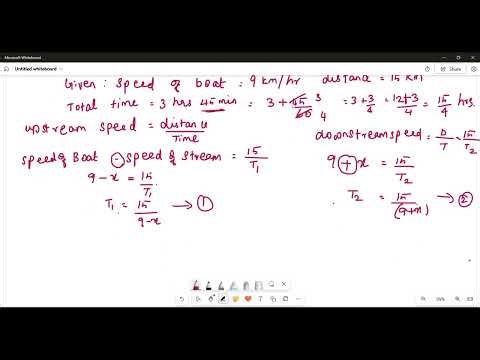 Microsoft Whiteboard
Untitled whiteboard
Given: Speed of boat = 9 km/hr distance = 15 km
Total time = 3 hrs 45 min = 3 + 45/60 3/4 = 3 + 3/4 = 12+3/4 = 15/4 hrs.
upstream speed = distance/Time
downstream speed = D/T = 15/T2
Speed of Boat - Speed of stream = 15/T1
9 - x = 15/T1
9 + x = 15/T2
T1 = 15/9-x → ①
T2 = 15/(9+x) → ②